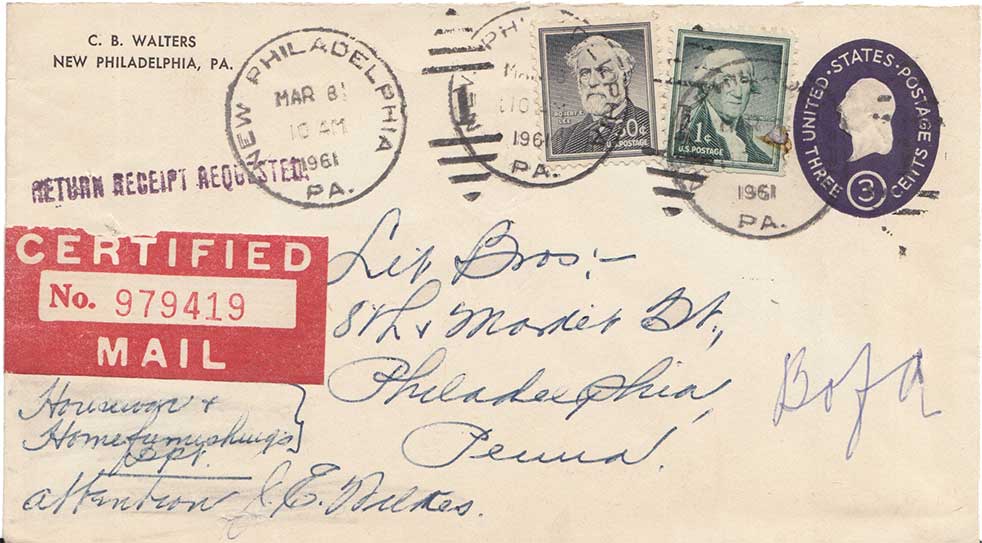 C. B. WALTERS
NEW PHILADELPHIA, PA.
NEW PHILADELPHIA
MAR 31
10 AM
1961
PA.
1961
PA.
ROBERT E. LEE
30¢
U.S. POSTAGE
1¢
U.S. POSTAGE
1961
PA.
UNITED·STATES·POSTAGE
THREE 3 CENTS
RETURN RECEIPT REQUESTED
CERTIFIED
No. 979419
MAIL
Lit Bros:-
8th & Market St.,
Philadelphia,
Penna.
B of A
Housewar &
Homefurnishings
Dpt.
attention J. E. Wilkes.